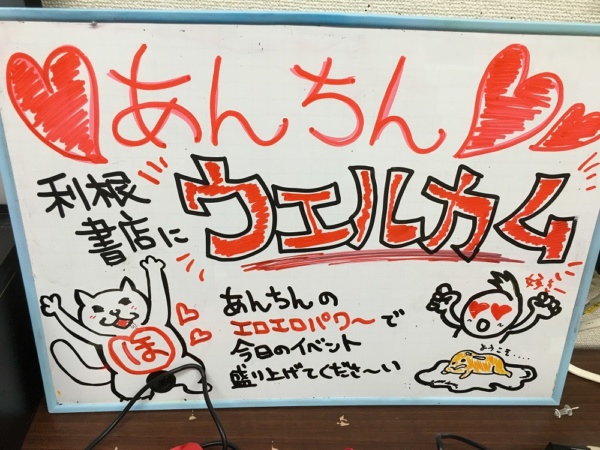 あんちん
利根
書店に
ウエルカム
あんちんの
エロエロパワ〜で
今日のイベント
盛り上げてくださ〜い
ほ
好き
ようこそ....